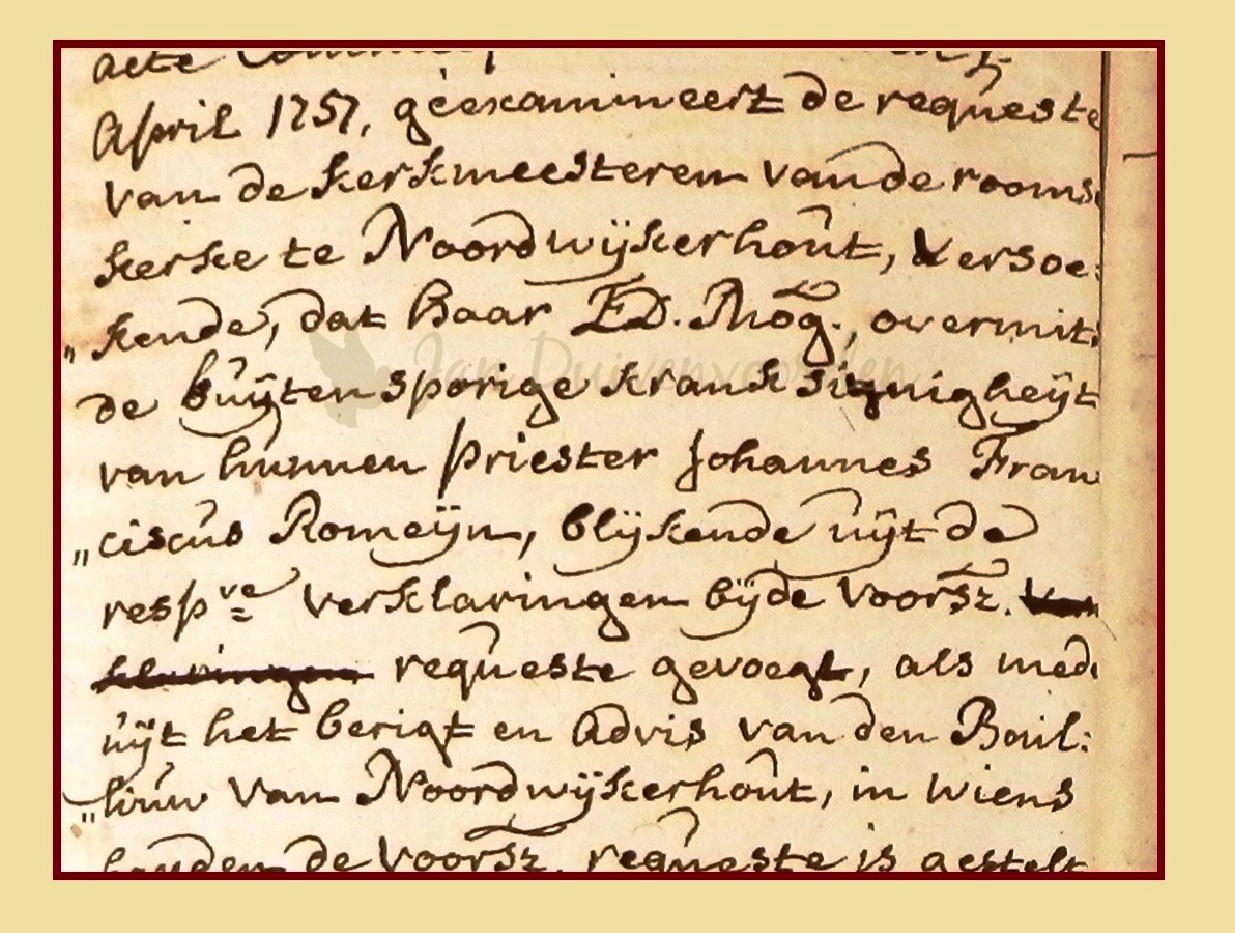 acte
April 1757, geëxamineert de requeste
van de kerkmeesteren van de rooms
kerke te Noordwijkerhout, versoe:
„kende, dat Haar Ed. Mog., overmit
de buÿtensporige kranksinnigheÿt
van hunnen Priester Johannes Fran
„ciscus Romeÿn, blÿkende uÿt de
respve verklaringen bÿ de voorsz.
requeste gevoegt, als mede
uÿt het berigt en Advis van den Bail:
„liuw van Noordwÿkerhout, in wiens
handen de voorsz. requeste is gestelt
Jan Duivenvoorden